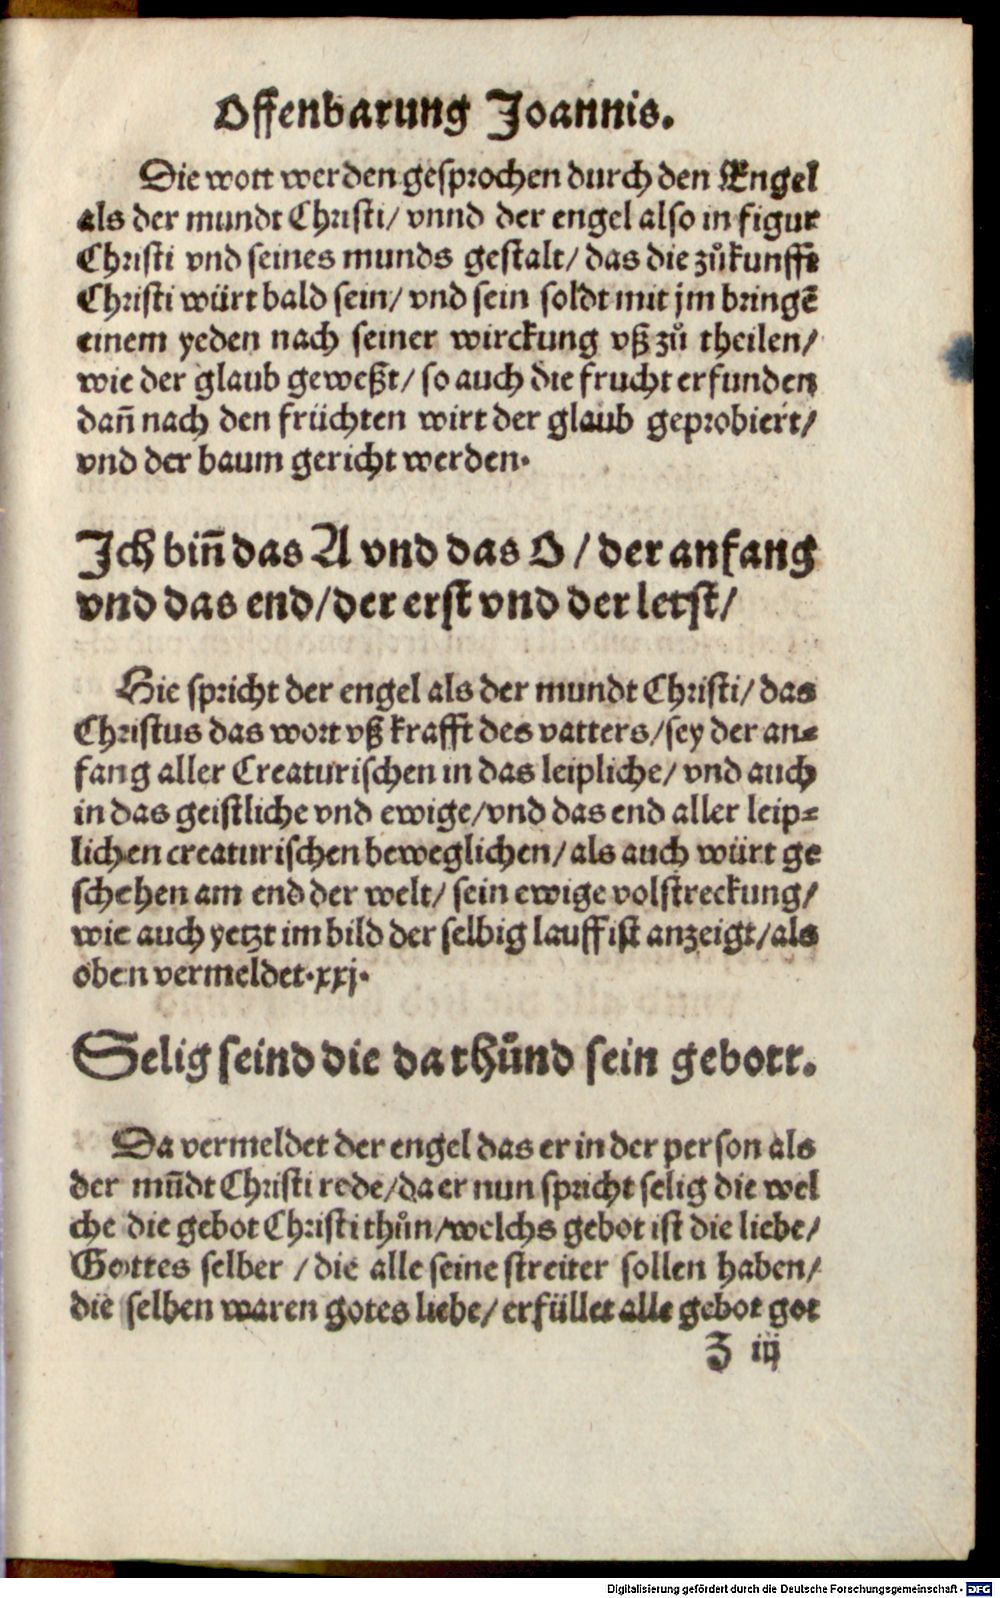 Offenbarung Joannis.
Die wort werden gesprochen durch den Engel
als der mundt Christi/ vnnd der engel also in figur
Christi vnd seines munds gestalt/ das die zůkunfft
Christi würt bald sein/ vnd sein soldt mit jm bringẽ
einem yeden nach seiner wirckung vß zů theilen/
wie der glaub geweßt/ so auch die frucht erfunden
dañ nach den früchten wirt der glaub geprobiert/
vnd der baum gericht werden.
Ich biñ das A vnd das O/ der anfang
vnd das end/ der erst vnd der letst/
Hie spricht der engel als der mundt Christi/ das
Christus das wort vß krafft des vatters/ sey der an⸗
fang aller Creaturischen in das leipliche/ vnd auch
in das geistliche vnd ewige/ vnd das end aller leip⸗
lichen creaturischen beweglichen/ als auch würt ge
schehen am end der welt/ sein ewige volstreckung/
wie auch yetzt im bild der selbig lauff ist anzeigt/ als
oben vermeldet.xxj.
Selig seind die da thůnd sein gebott.
Da vermeldet der engel das er in der person als
der mũdt Christi rede/ da er nun spricht selig die wel
che die gebot Christi thůn/ welchs gebot ist die liebe/
Gottes selber / die alle seine streiter sollen haben/
die selben waren gotes liebe/ erfüllet alle gebot got
Z iij
Digitalisierung gefördert durch die Deutsche Forschungsgemeinschaft - DFG